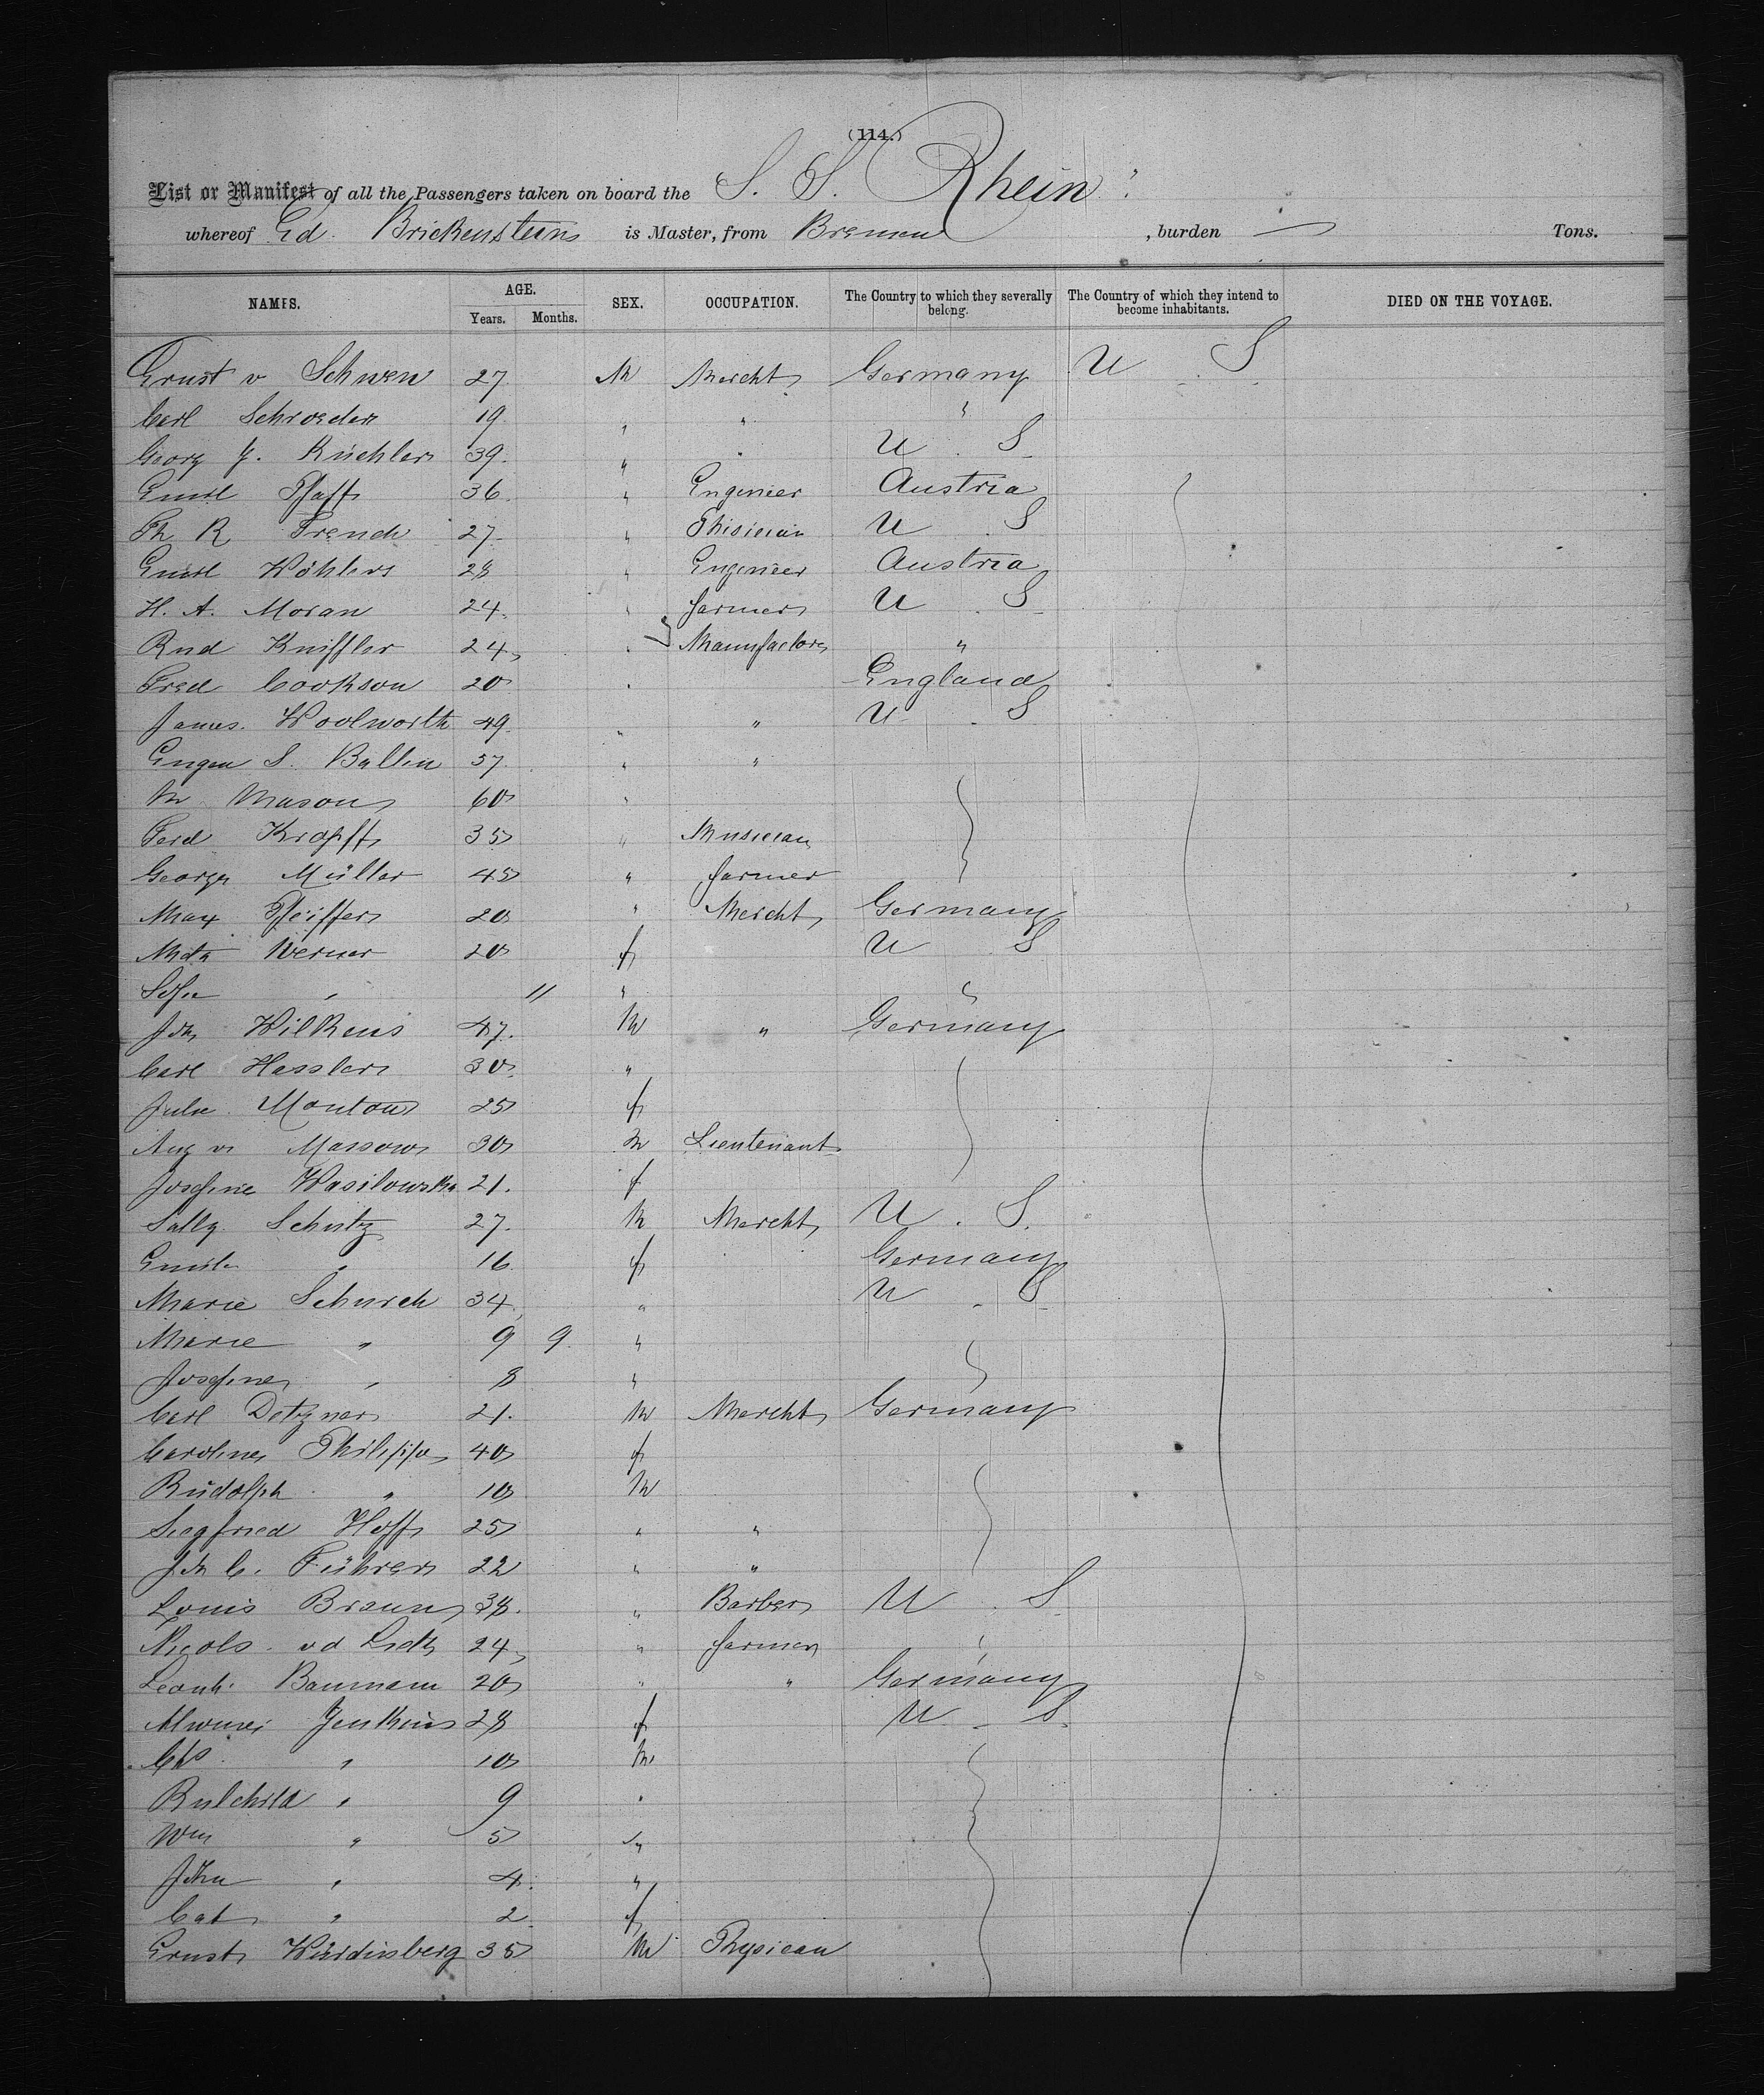 (114.)
List or Manifest of all the Passengers taken on board the S. S. Rhein
whereof Ed. Brickenstein is Master, from Bremen , burden — Tons.
NAMES. AGE. Years. Months. SEX. OCCUPATION. The Country to which they severally belong. The Country of which they intend to become inhabitants. DIED ON THE VOYAGE.
Ernst v Schwen 27 M Mercht Germany U S
Carl Schroeder 19 " " "
Georg J. Küchler 39 " " U S
Emil Pfaff 36 " Engineer Austria
Th R French 27 " Phisician U S
Emil Köhlers 28 " Engineer Austria
H. A. Moran 24 " farmer U S
Rud Kniffler 24 " Manufactor "
Fred Cookson 20 " England
James Woolworth 49 " " U S
Eugen S. Ballin 37 " "
M Mason 60 "
Ferd Kropff 35 " Musician
George Müller 45 " farmer
Max Pfeiffer 20 " Mercht Germany
Meta Werner 20 f U S
" 11 " "
Joh Wilkens 47 M " Germany
Carl Hassler 30 "
Julie Montou 25 f
Aug v Massow 30 M Lieutenant
Josefine Wasilowska 21 f
Sally Schutz 27 M Mercht U. S.
Emilie " 16 f Germany
Marie Schurch 34 " U S
Marie " 9 9 "
Josefine " 8 "
Carl Detzner 21 M Mercht Germany
Caroline Philippe 40 f
Rudolph " 10 M
Siegfried Hoff 25 " "
Joh C. Führer 22 " "
Louis Braun 38 " Barber U S
Nicols v d Lieth 24 " farmer "
Leonh. Baumann 20 " " Germany
Alwine Jenkins 28 f U S
Chs " 10 M
" 9 "
Wm " 5 "
John " 4 "
Cath " 2 f
Ernst Würdinsberg 35 M Physican